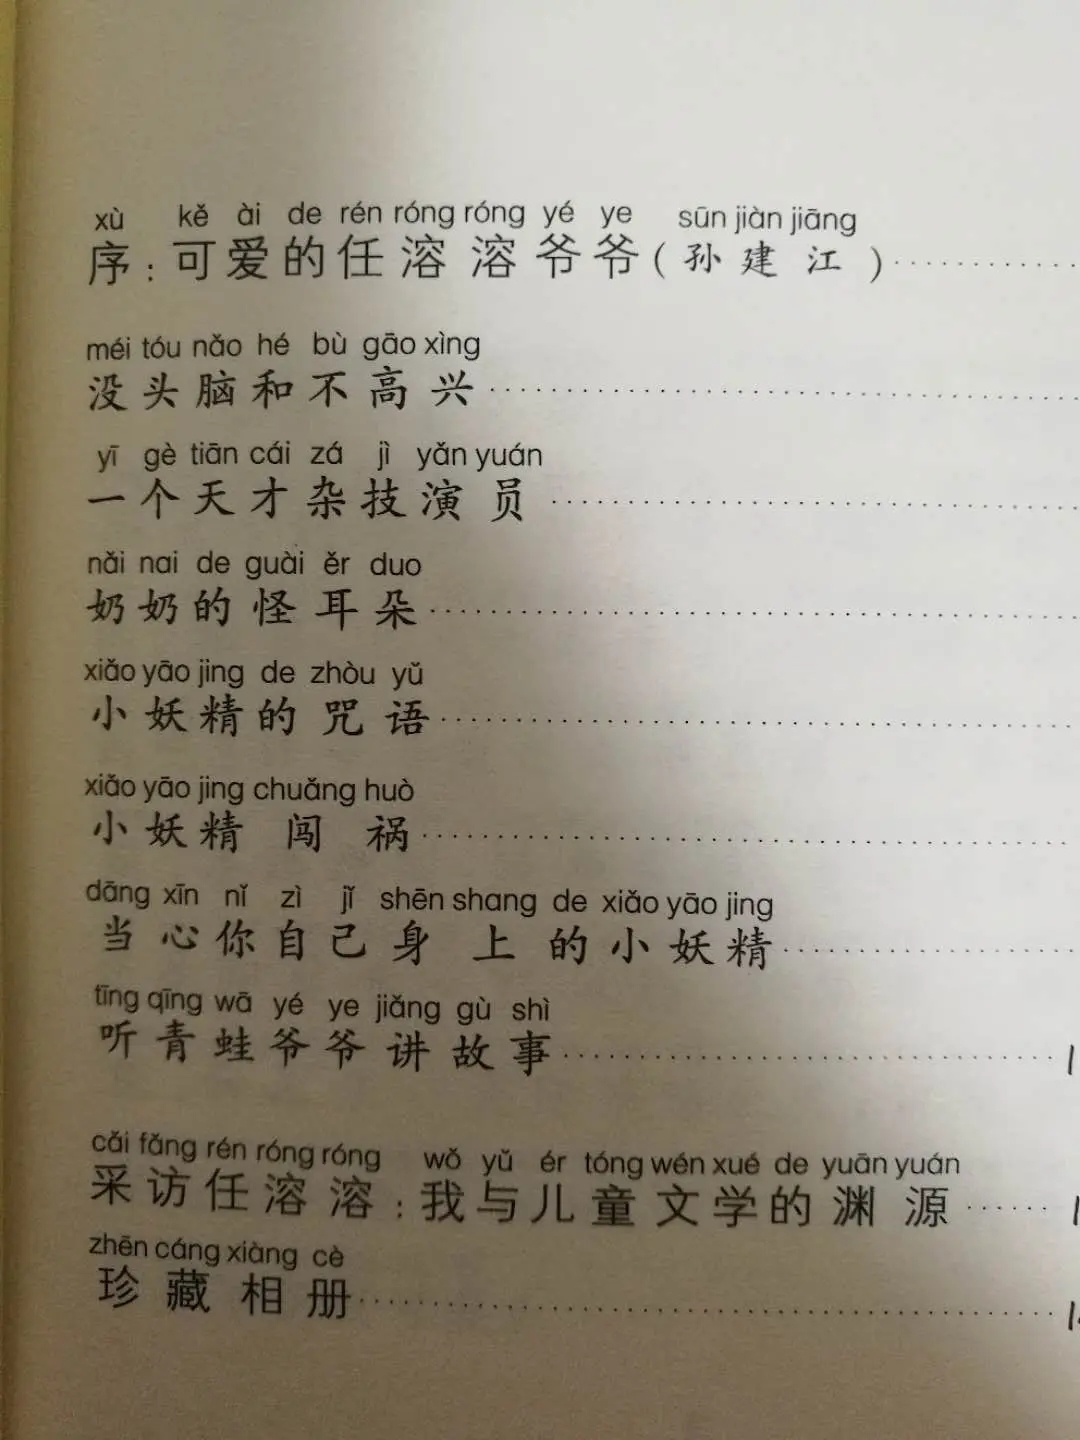 xù kě ài de rén róng róng yé ye sūn jiàn jiāng
序：可爱的任溶溶爷爷（孙建江）
méi tóu nǎo hé bù gāo xìng
没头脑和不高兴
yī gè tiān cái zá jì yǎn yuán
一个天才杂技演员
nǎi nai de guài ěr duo
奶奶的怪耳朵
xiǎo yāo jing de zhòu yǔ
小妖精的咒语
xiǎo yāo jing chuǎng huò
小妖精闯祸
dāng xīn nǐ zì jǐ shēn shang de xiǎo yāo jing
当心你自己身上的小妖精
tīng qīng wā yé ye jiǎng gù shì
听青蛙爷爷讲故事
cǎi fǎng rén róng róng wǒ yǔ ér tóng wén xué de yuān yuán
采访任溶溶：我与儿童文学的渊源
zhēn cáng xiàng cè
珍藏相册